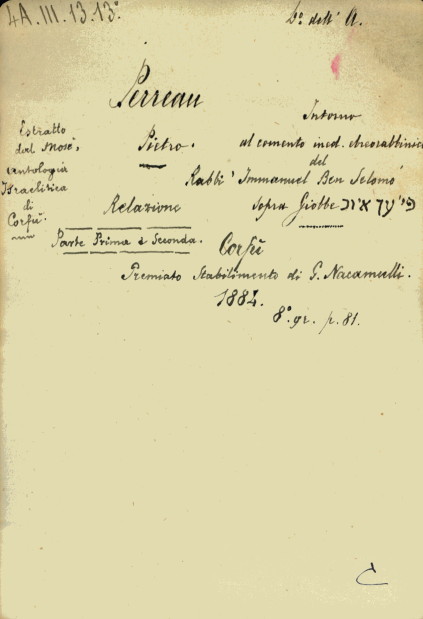 4A.III.13.13°
D° dell' A.
Perreau
Pietro.
Intorno
al comento ined. ebreorabbinico
del
Rabbi' Immanuel Ben Selomo'
sopra Giobbe פי' על איוב
Relazione
Parte Prima e Seconda.
Estratto
dal Mosè,
Antologia
Israelitica
di
Corfù.
Corfù
Premiato Stabilimento di G. Nacamulli.
1884.
8°. gr. p. 81.